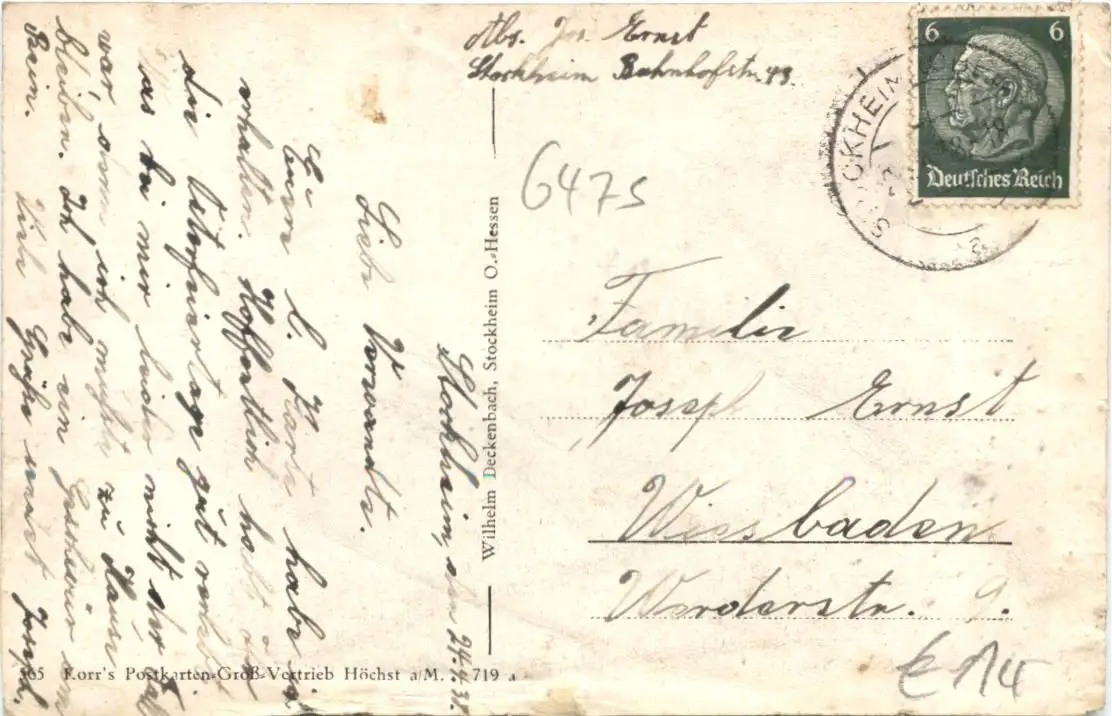 Abs. Jos. Ernst
Stockheim Bahnhofstr. 43.
6 6
Deutsches Reich
STOCKHEIM
6475
Familie
Joseph Ernst
Wiesbaden
Werderstr. 9.
€ 14
Wilhelm Deckenbach, Stockheim O.-Hessen
Stockheim, den 24.4.38.
Liebe Verwandte.
Eure l. Karte habe ich
erhalten. Hoffentlich habt ihr
die Osterfeiertage gut verlebt
was bei mir leider nicht der Fall
war denn ich mußte zu Hause
bleiben. Ich habe ein Geschwür am
Bein. Viele Grüße sendet Josef.
565 Korr's Postkarten-Groß-Vertrieb Höchst a/M. 719 a